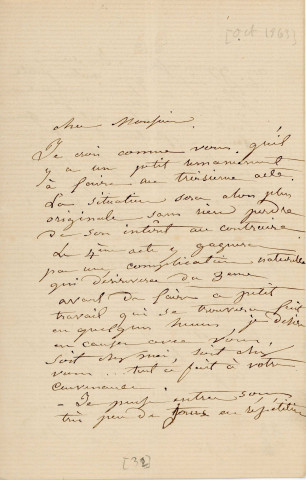 [Oct 1863]
cher Monsieur.
Je crois comme vous qu'il
y a un petit remaniement
à faire au troisième acte.
La situation sera alors plus
originale sans rien perdre
de son intérêt au contraire.
Le 4ème acte y gagnera
par une complication naturelle
qui dérivera du 3ème
avant de faire ce petit
travail qui se trouvera fait
en quelques heures, je désire
en causer avec vous,
soit chez moi, soit chez
vous ... tout à fait à votre
convenance.
- Je puis entrer sous
très peu de jours en répétition
[32]